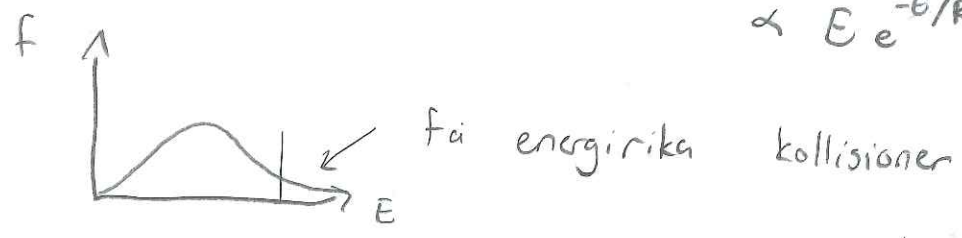 ∝ E e^{-E/k
f
få energirika kollisioner
E